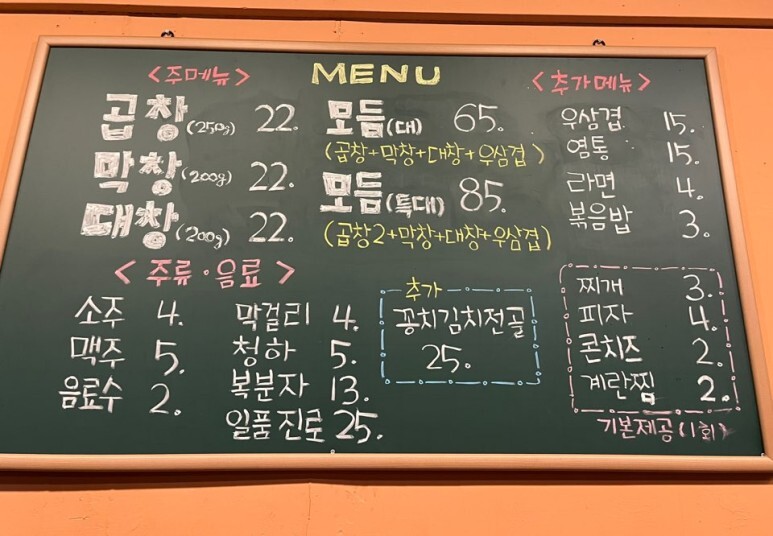 MENU
<주메뉴>
곱창(250g) 22.
막창(200g) 22.
대창(200g) 22.
모듬(대) 65.
(곱창+막창+대창+우삼겹)
모듬(특대) 85.
(곱창2+막창+대창+우삼겹)
<추가메뉴>
우삼겹 15.
염통 15.
라면 4.
볶음밥 3.
<주류·음료>
소주 4.
맥주 5.
음료수 2.
막걸리 4.
청하 5.
복분자 13.
일품진로 25.
추가
꽁치김치전골
25.
찌개 3.
피자 4.
콘치즈 2.
계란찜 2.
기본제공(1회)